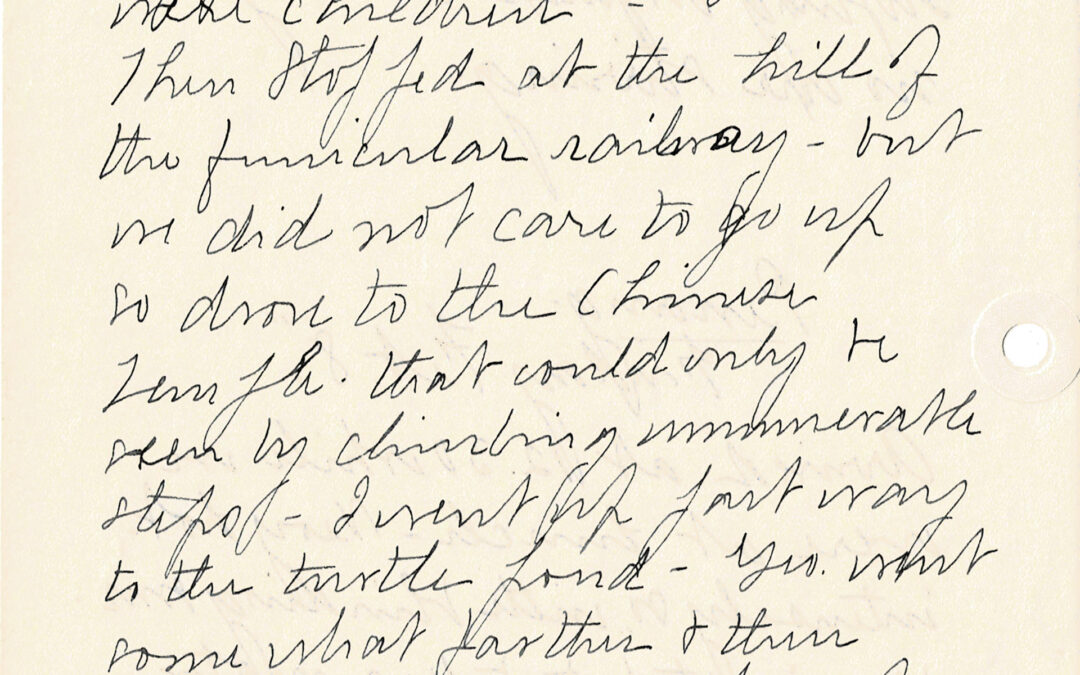 were children -
Then Stopped at the hill of
the funicular railway - but
we did not care to go up
so drove to the Chinese
Temple. that could only be
seen by climbing innumerable
steps - I went up part way
to the turtle pond - Geo. went
some what farther & then